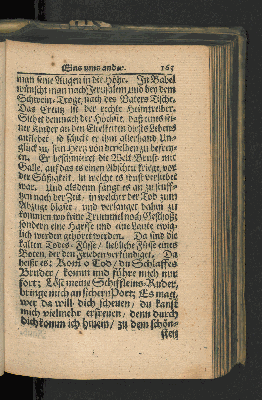 Eins ums ander. 165
man seine Augen in die Höhe. In Babel
wünscht man nach Jerusalem und bey dem
Schwein-Troge, nach des Vaters Tische.
Das Creutz ist der rechte Heimtreiber.
Siehet demnach der Höchste, daß eines sei-
ner Kinder an den Eitelkeiten dieses Lebens
anklebet, so schickt er ihm allerhand Un-
glück zu, sein Hertz von derselben zu befrey-
en. Er beschmieret die Welt Brust mit
Galle, auf das es einen Abscheu kriege, vor
der Süßigkeit, in welche es sonst verliebet
war. Und alsdenn fängt es an zu seuff-
zen nach der Zeit, in welcher der Tod zum
Abzuge bläset, und verlanget dahin zu
kommen wo keine Trummel noch Geschoß;
sondern eine Harffe und eine Laute ewig-
lich werden gehöret werden. Da sind die
kalten Todes-Füsse, liebliche Füsse eines
Boten, der den Frieden verkündiget. Da
heist es: Kom o Tod, du Schlaffes
Bruder, komm und führe mich nur
fort; Löse meine Schiffleins-Ruder,
bringe mich an sichern Port; Es mag,
wer da will dich scheuen, du kanst
mich vielmehr erfreuen, denn durch
dich komm ich hinein, zu dem schön-
sten